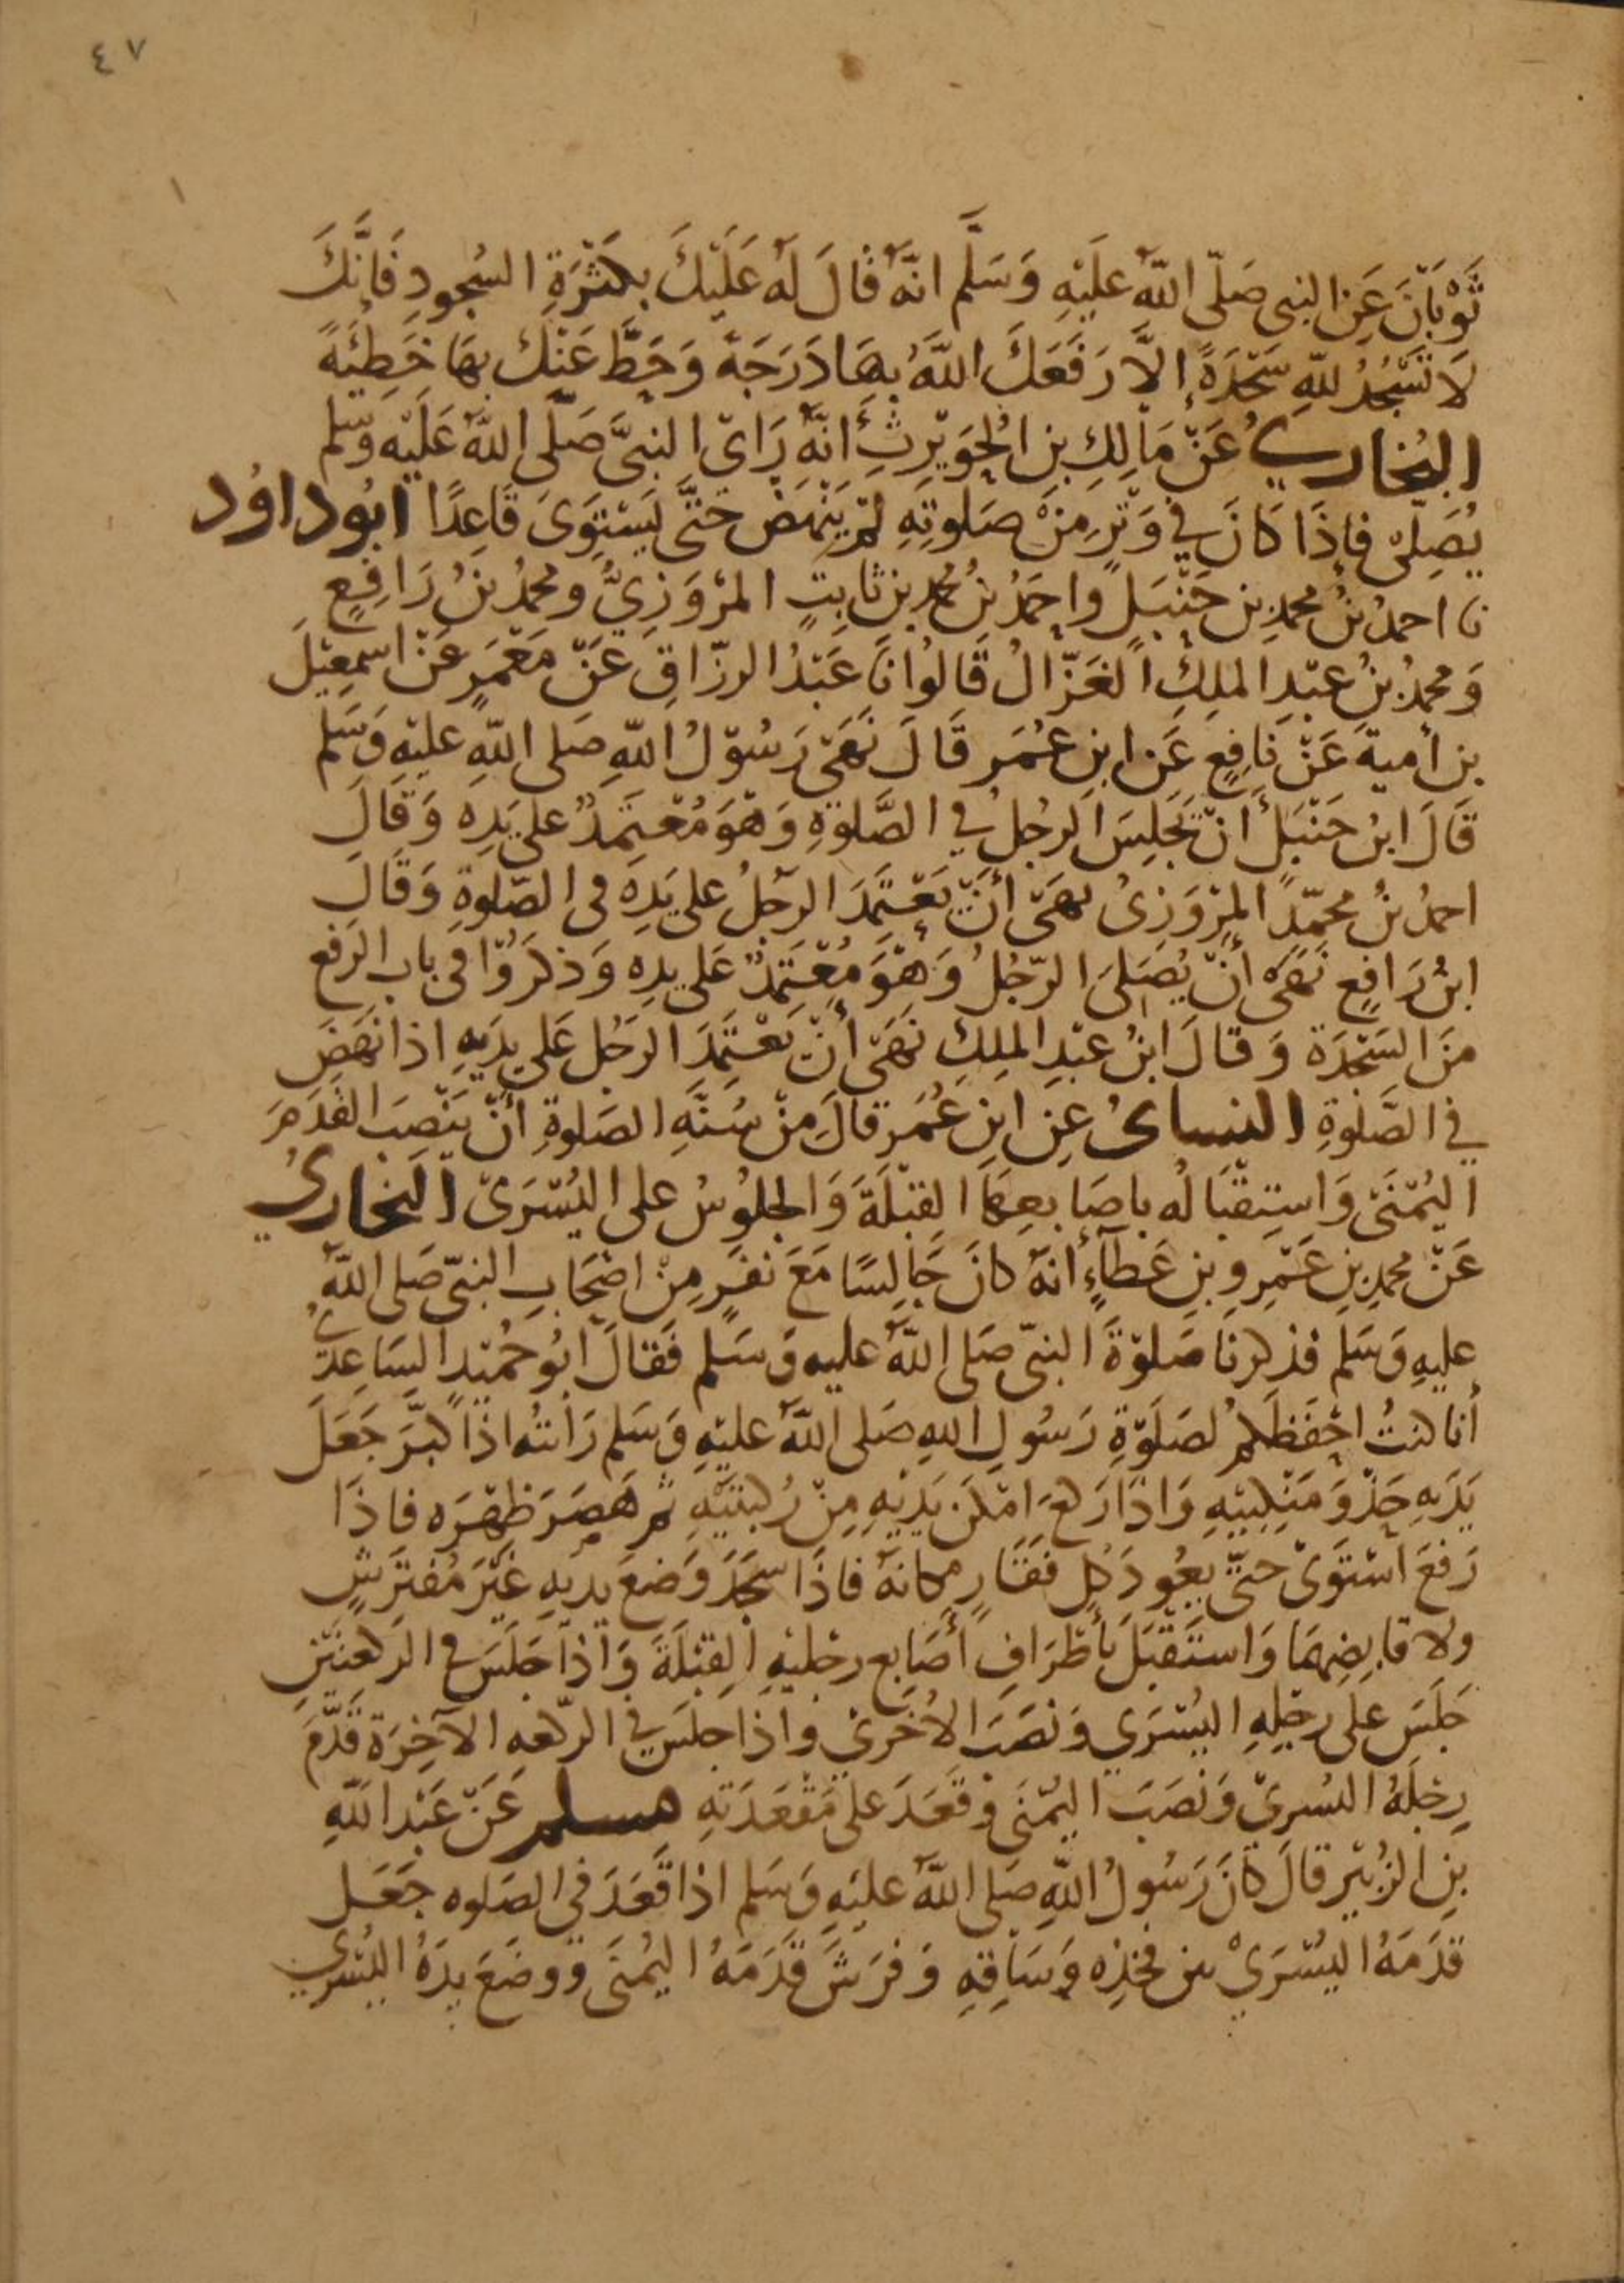 ٤٧
ثَوْبَانَ عَنِ النبي صَلّى اللهُ علَيْهِ وَسَلَّم انّهُ قَالَ لَهُ عَلَيْكَ بِكَثْرَةِ السُجودِ فَإنَّكَ
لَا تَسْجُدُ للهِ سَجْدَةً إلاَّ رَفَعَكَ اللهُ بِهَا دَرَجَة وَحَطَّ عَنْكَ بِهَا خَطِئَةً
البُخاري عَنْ مَالِكِ بنِ الحُوَيْرِثِ أنّهُ رَاىَ النبيَّ صَلَّى اللهُ عَلَيْه وسَلم
يُصَلِّى فإذَا كَانَ في وَتْرٍ مِنْ صَلوتِهِ لمْ يَنْهَضْ حَتَّى يَسْتَوِىَ قَاعِدًا ابُو داوُد
نا احمدُ بنُ محمدِ بنِ حَنْبَلٍ واحمَدُ بنُ محمد بن ثابِتٍ المَرْوَزِيُّ ومحمدُ بنُ رَافِعٍ
وَمحمدُ بنُ عبْدِ الملِكِ الغَزّالُ قَالُوا نَا عَبْدُ الرزّاقِ عَنْ مَعْمَرٍ عَنْ اسمعِيْلَ
بنِ أميةَ عَنْ نَافِعٍ عَنِ ابنِ عُمَر قَالَ نَهَى رَسُوْلُ اللهِ صَلى اللهِ عليْهِ وَسَلم
قَالَ ابنُ حَنْبَلٍ أنْ يَجْلِسَ الرجُلُ في الصَّلوةِ وَهْوَ مُعْتَمِدٌ على يَدِه وَقَالَ
احمدُ بنُ محمّدٍ المَرْوَزِيُ نهَى أنْ يَعْتَمِدَ الرجُلُ على يَدِهِ في الصّلوةِ وَقَالَ
ابنُ رَافِعٍ نَهَى أنْ يُصَلىَ الرّجُلُ وَهْوَ مُعْتَمِدٌ عَلى يدِهِ وَذكَرُوْا في باب الرَفع
منَ السَّجْدَة وَقالَ ابنُ عبْدِ الملِكِ نَهَى أنْ يَعْتَمِدَ الرَجُل عَلى يدَيهِ اذا نَهَضَ
في الصَّلوةِ النسائُ عنِ ابنِ عُمَر قالَ مِنْ سُنَّةِ الصَلوةِ أنْ يَنْصِبَ القَدَمَ
اليُمْنَى وَاسْتِقْبَالُه باصَابعِهَا القِبْلَةَ وَالجُلوُسُ على اليُسْرَى البُخاريُ
عَنْ محمدِ بنِ عَمْرِو بنِ عَطآءٍ أنهُ كانَ جَالِسًا مَعَ نَفَرٍ مِنْ اصْحَابِ النبيّ صَلى اللهُ
عليهِ وَسَلم فذكرنَا صَلوْةَ النبيّ صَلى اللهُ عليه وَسَلم فَقالَ ابُو حُمَيْدٍ السَاعِدِيُّ
أنا كنتُ احْفَظَكمْ لصَلَوةِ رَسُولِ اللهِ صَلى اللهُ عليْهِ وَسَلم رَايتُه اذَا كبَّرَ جَعَلَ
يَدَيهِ حَذْوَ مَنْكِبَيْهِ وَاذَا رَكعَ امْكَنَ يَدَيْهِ مِنْ رُكْبَتَيْهِ ثم هَصَرَ ظهْرَه فاذَا
رَفَعَ اسْتَوَى حتّى يَعُودَ كل فَقَارٍ مكانهُ فاذَا سَجَدَ وَضعَ يديهِ غَيْرَ مُفْتَرِشٍ
ولا قابِضِهِمَا وَاسْتَقْبَلَ بأطْرَافِ أَصَابِعِ رجْليْهِ القِبْلَةَ وَاذَا جَلَسَ في الرَكعتيْنِ
جَلَسَ عَلى رجْلِهِ اليُسْرَي وَنَصَبَ الأُخْرَي واذا جلسَ في الرّكعه الآخِرَة قَدَّمَ
رِجْلَهُ اليسْرىَ وَنَصَبَ اليُمْنَى وَقعَدَ عَلى مَقْعَدَتِهِ مسلم عَنْ عَبْد اللهِ
بنِ الزُبيْر قالَ كَانَ رَسُولُ اللهِ صَلى اللهُ عليْهِ وَسَلم اذا قَعَدَ في الصَلوه جَعَل
قدَمَهُ اليُسْرَيْ بين فخِذِه وَسَاقِهِ وَفَرَشَ قَدَمَهُ اليُمْنَى ووضَعَ يدَهُ اليُسْري